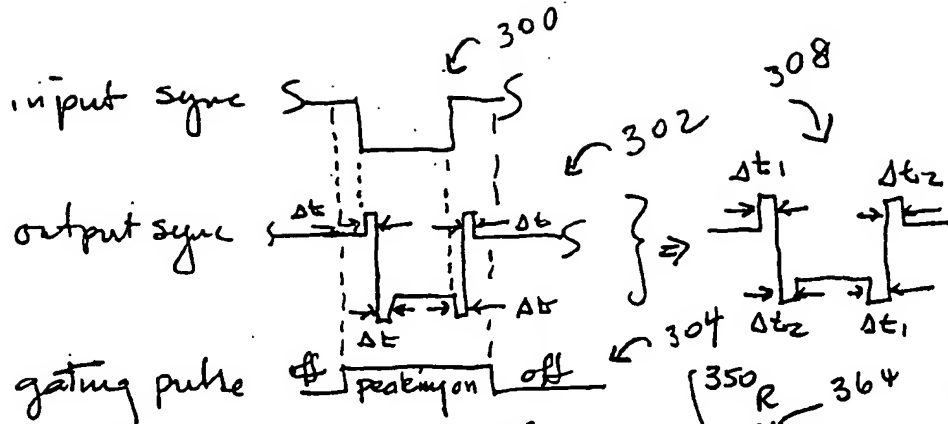 300
input sync
308
302
Δt1 Δt2
output sync Δt Δt ⇒
Δt Δt
Δt2 Δt1
304
gating pulse off peaking on off
350 R 364